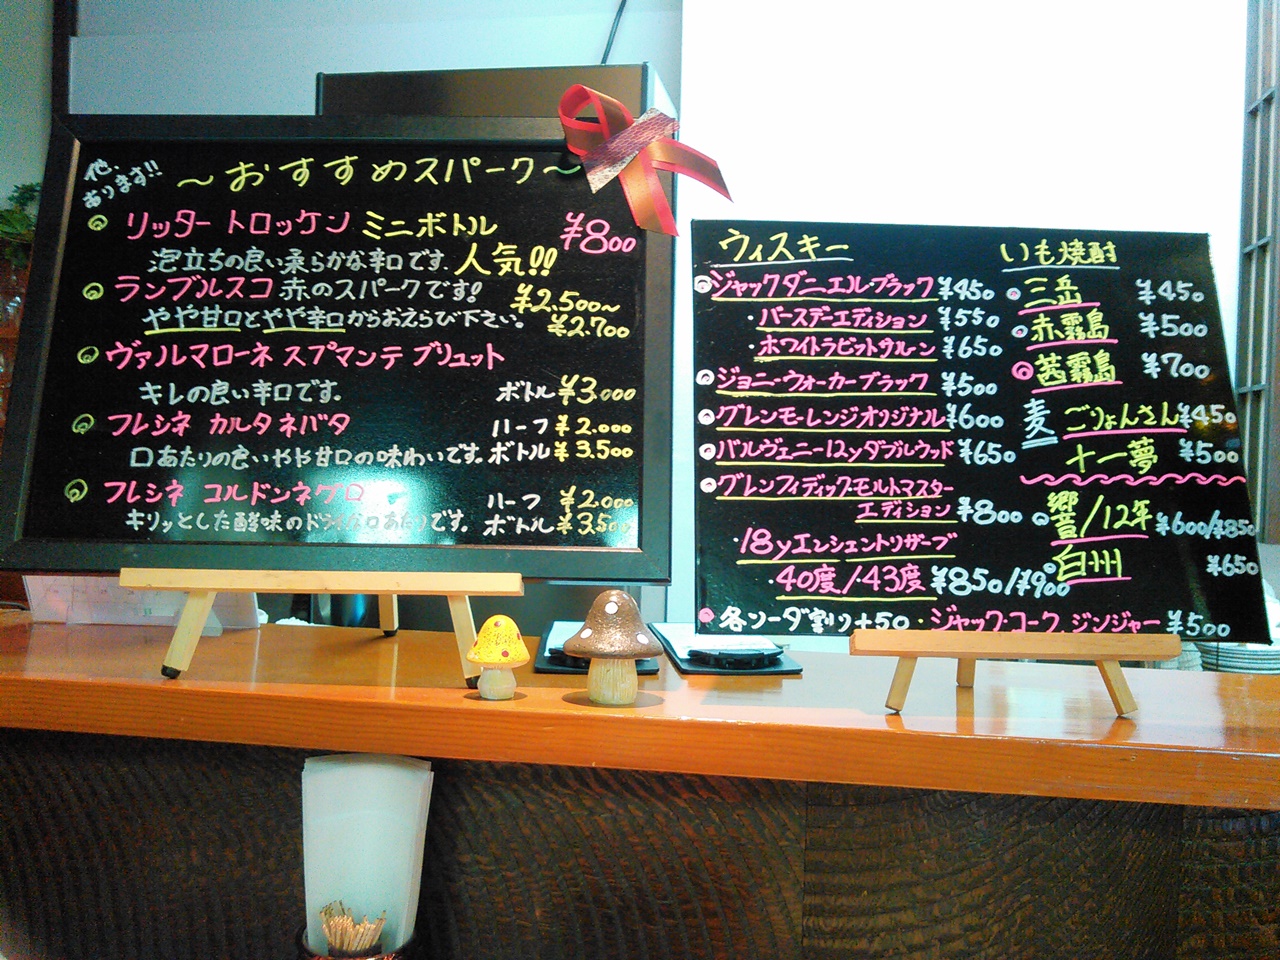 他、
あります!!
～おすすめスパーク～
リッター トロッケン ミニボトル ¥800
泡立ちの良い柔らかな辛口です. 人気!!
ランブルスコ 赤のスパークです! ¥2.500～
やや甘口とやや辛口からおえらび下さい。 ¥2.700
ヴァルマローネ スプマンテ ブリュット
キレの良い辛口です。 ボトル ¥3.000
フレシネ カルタ ネバタ ハーフ ¥2.000
口あたりの良いやや甘口の味わいです。ボトル ¥3.500
フレシネ コルドンネグロ ハーフ ¥2.000
キリッとした酸味のドライな口あたりです。 ボトル ¥3.500
ウィスキー
ジャックダニエル・ブラック ¥450
・バースデーエディション ¥550
・ホワイトラビットサルーン ¥650
ジョニ・ウォーカーブラック ¥500
グレンモーレンジオリジナル ¥600
バルヴェニー12yダブルウッド ¥650
グレンフィディック・モルトマスター
エディション ¥800
・18yエンシェントリザーブ
・40度/43度 ¥850/¥900
各ソーダ割り+50・ジャック・コーク、ジンジャー ¥500
いも焼酎
三岳 ¥450
赤霧島 ¥500
茜霧島 ¥700
麦 ごりょんさん ¥450
十一夢 ¥500
響/12年 ¥600/¥850
白州 ¥650